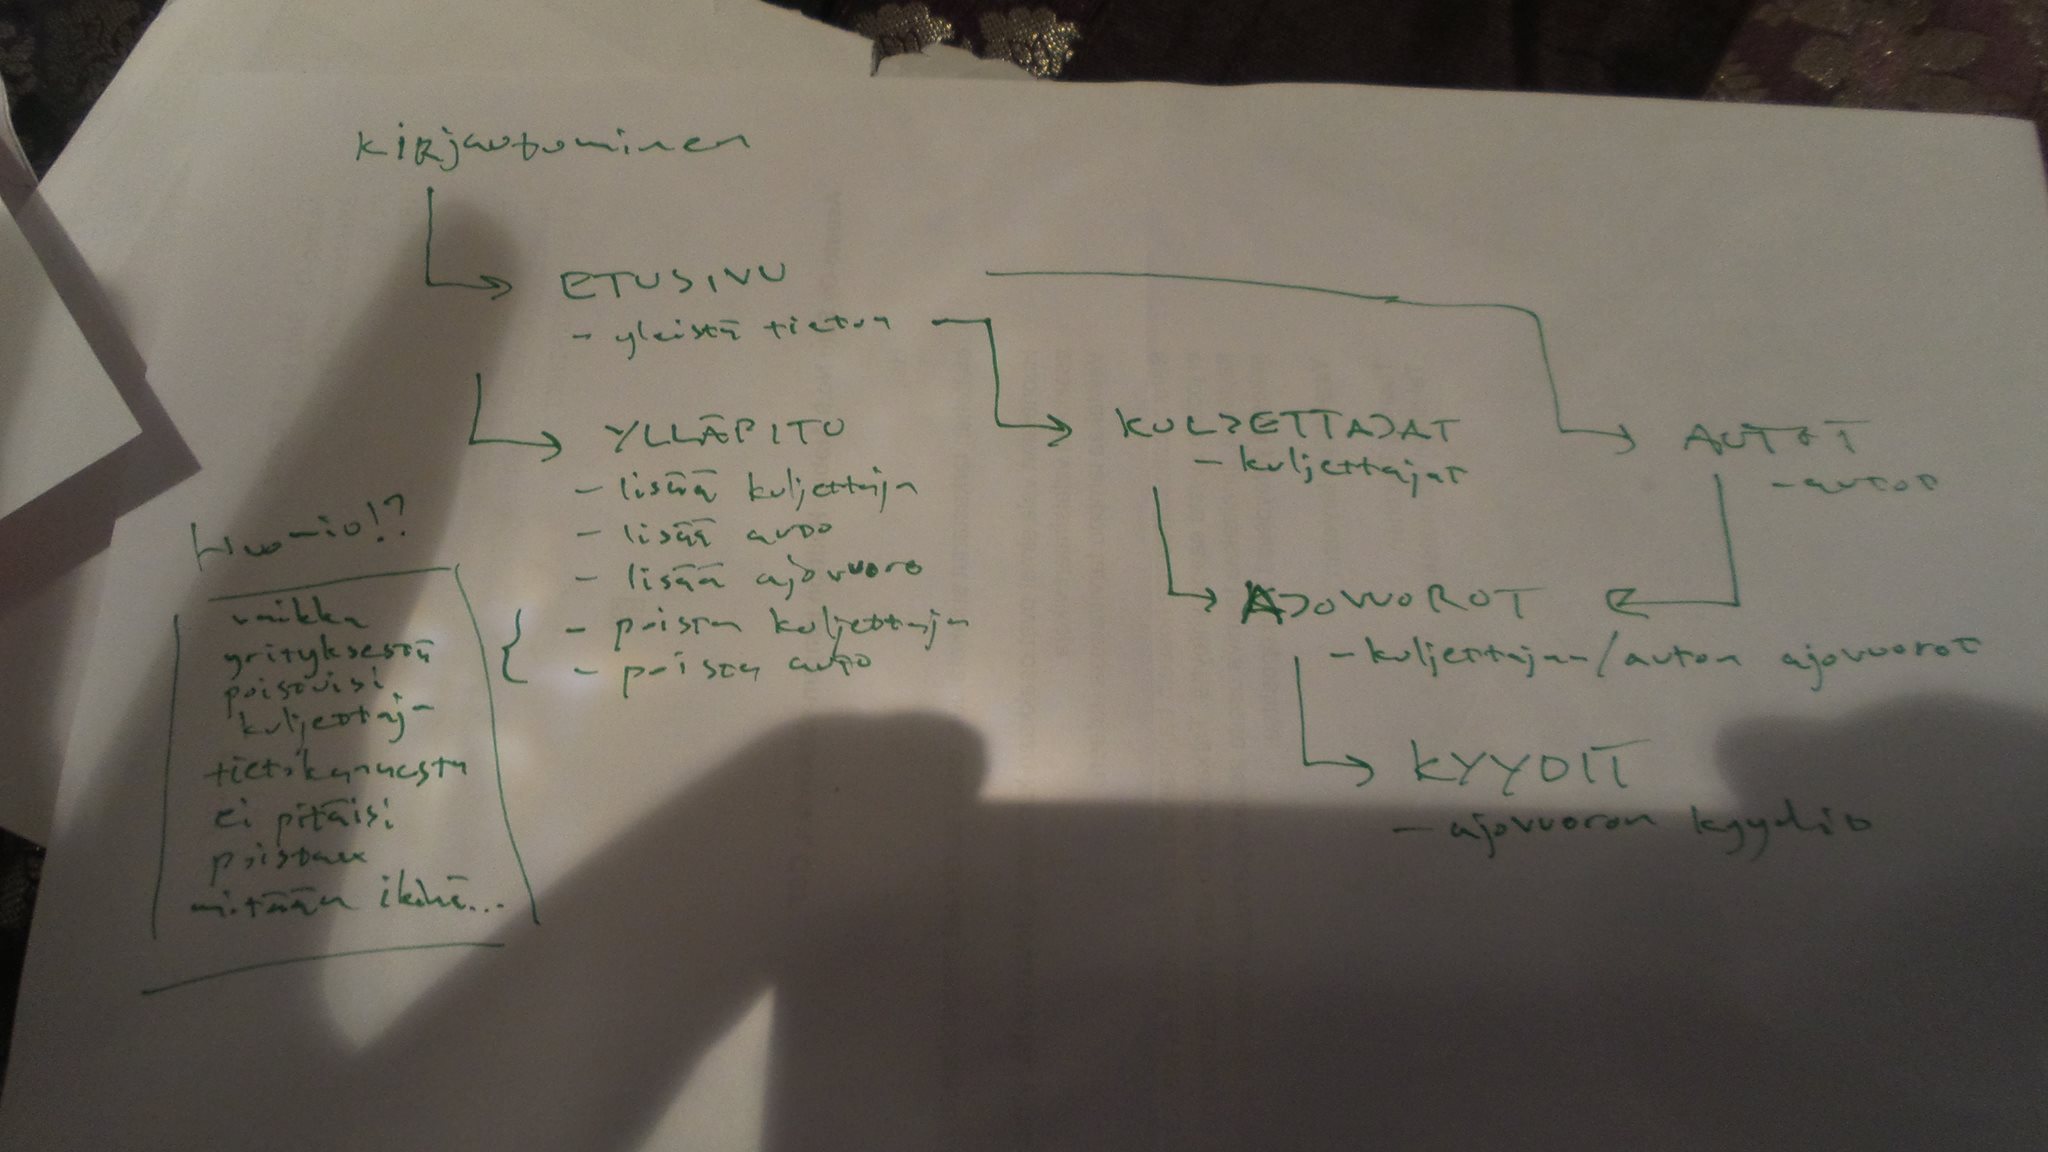 Kirjautuminen
ETUSIVU
- yleistä tietoa
YLLÄPITO
- lisää kuljettaja
- lisää auto
- lisää ajovuoro
- poista kuljettaja
- poista auto
Huomio!?
vaikka
yrityksestä
poistuisi
kuljettaja
tietokannasta
ei pitäisi
poistaa
mitään ikinä...
KULJETTAJAT
- kuljettajat
AUTOT
- autot
AJOVUOROT
- kuljettajan/auton ajovuorot
KYYDIT
- ajovuoron kyydit